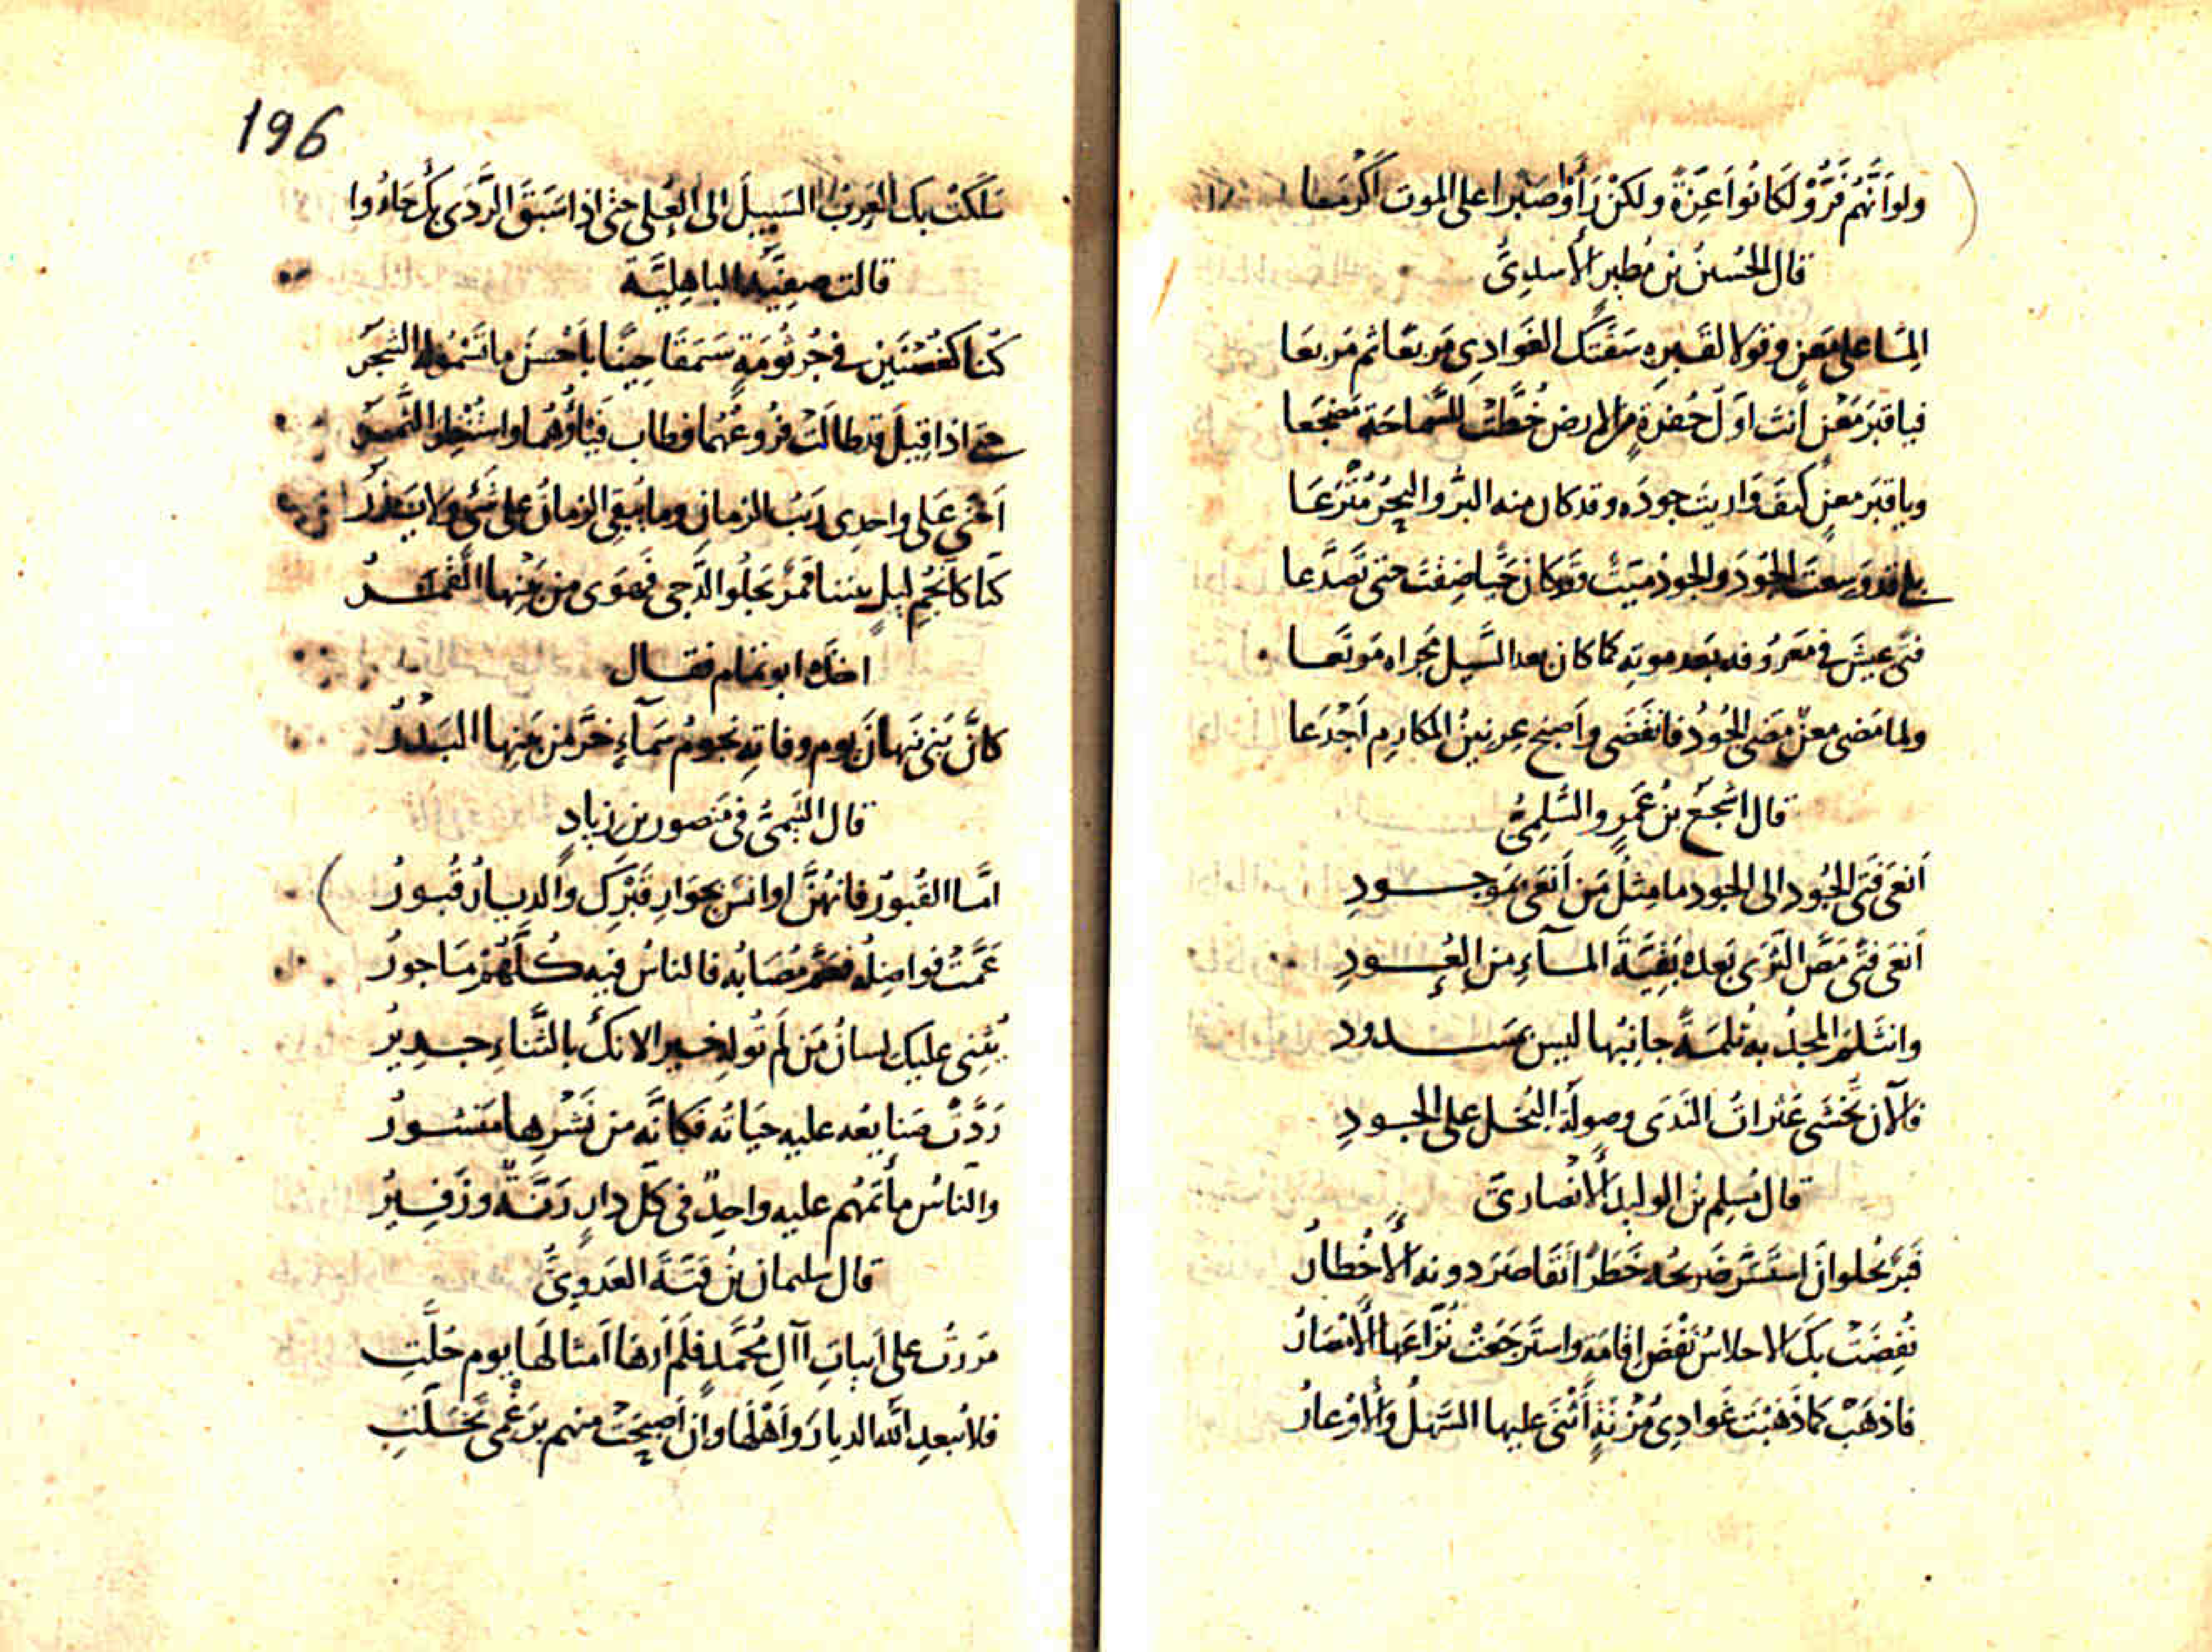 ولو اَنَّهُم فَرُّوْ لَكانُوا اَعِزَّةً ولكنْ رَأَوْا صَبْرا على الموت اَكْرَمَا
قال الحُسينُ بن مُطيرٍ الأسدِىُّ
المّا على مَعن وقولا لقبره سَقَتكَ الغَوادِى مَربَعًا ثم مَربعَا
فيا قبَر مَعْنٍ اَنتَ اوّلُ حُفرَةٍ من الارض خُطَّتْ للسَّماحَة مَضجَعا
ويا قبَر معنٍ كيفَ وَاريتَ جودَه وقد كان منه البرُّ والبحرُ مُتْرَعَا
بلى قد وَسِعتَ الجُودَ والجودُ مَيِّتٌ ولو كان حَيًّا ضِقتَ حتى تَصَدَّعا
فتًى عِيشَ فى مَعرُوفه بَعد موته كما كان بعد السَّيل مَجراه مَرتَعَا
ولما مَضى معنٌ مَضى الجُودُ فانقَضَى واَصبحَ عِرنِينُ المَكارِم اَجْدَعَا
قال اشجعُ بنُ عَمرٍو السُّلمِىُّ
اَنعَى فَتَى الجُود الى الجود ما مِثلُ مَن اَنعَى بمَوجودِ
اَنعَى فتًى مَصَّ الثَّرَى بَعدَه بَقِيَّةَ المآءِ من العُودِ
وانثَلَم المجدُ به ثلمَةً جانِبُها ليس بمَسدود
فالآن تُخشَى عَثراتُ النَدَى وصولَةُ البُخل على الجودِ
قال مُسلِم بنُ الوليد الأَنصارىّ
قَبرٌ بحُلوانَ استَسَرَّ ضَريحُه خَطَرًا تَقاصَرَ دونه الأَخْطارُ
نُفِضَتْ بكَ الاحلاسُ نَفضَ اِقامَةٍ واستَرجَعَتْ نُزّاعَها الأَمْصَارُ
فاذهَبْ كَما ذَهَبَت غَوادِى مُزْنَةٍ أَثْنَى عليها السَّهلُ وَالأَوْعارُ
196
سَلَكَتْ بك العَربُ السَبِيلَ الى العُلى حتى اذا سَبَقَ الرَّدَى بك حَارُوا
قالت صفِيَّه الباهِليَّة
كنّا كغُصْنَين فى جُرثُومَةٍ سَمَقَا حِينًا باَحْسَن ما تَسْمُو له الشجَر
حتى اذا قِيلَ قد طالَتْ فرُوعُهُما وطاب فَيْاؤُهُما واستُنْظِر الثَّمَرُ
اَخنَى عَلى واحِدِى رَيبُ الزمان وما يُبقِى الزمانُ على شَئٍ ولا يَذَرُ
كنّا كاَنجُمِ ليلٍ بيننا قمَرٌ يَجلُو الدُّجى فهَوَى من بَينِها القَمَرُ
اخذه ابو تمام فقال
كانّ بَنى نَبهانَ يوم وفاتِه نجومُ سَمآءٍ خَرَّ من بَينِها البَدْرُ
قال التَّيمىُّ فى مَنصور بن زيادٍ
امّا القُبورُ فانهُنَّ اوانسٌ بجوَارِ قَبْرِكَ والديارُ قُبورُ
عَمَّتْ فواضِلُه فعَمَّ مُصَابُه فالناسُ فيه كُلُّهُمْ مَاجورُ
يُثنِى عليك لسانُ مَن لَم تُولِه خيرا لانكَ بالثَّناءِ جدِيرُ
رَدَّتْ صَنايعُه عليه حيَاتَه فكانّه من نَشْرِها مَنشورُ
والنّاسُ مأتَمُهُم عليه واحِدٌ فى كلّ دارٍ رَنَّةٌ وزَفِيرُ
قال سليمان بنُ قَتَّةَ العَدوِىُّ
مَررتُ على اَبياتِ آلِ مُحَمَّدٍ فلَم اَرهَا اَمثالَها يوم حَلَّتِ
فلا يُبعدِ اللّه الديارَ واَهْلَها وان اَصبحَتْ منهم برَغْمى تَخَلَّتِ